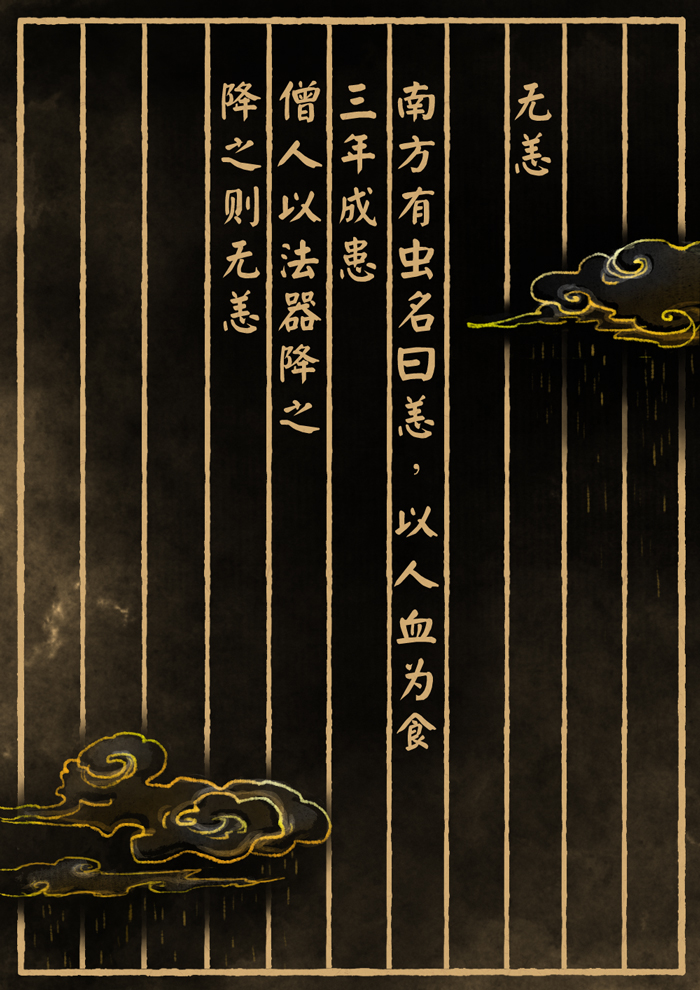 无恙
南方有虫名曰恙，以人血为食
三年成患
僧人以法器降之
降之则无恙